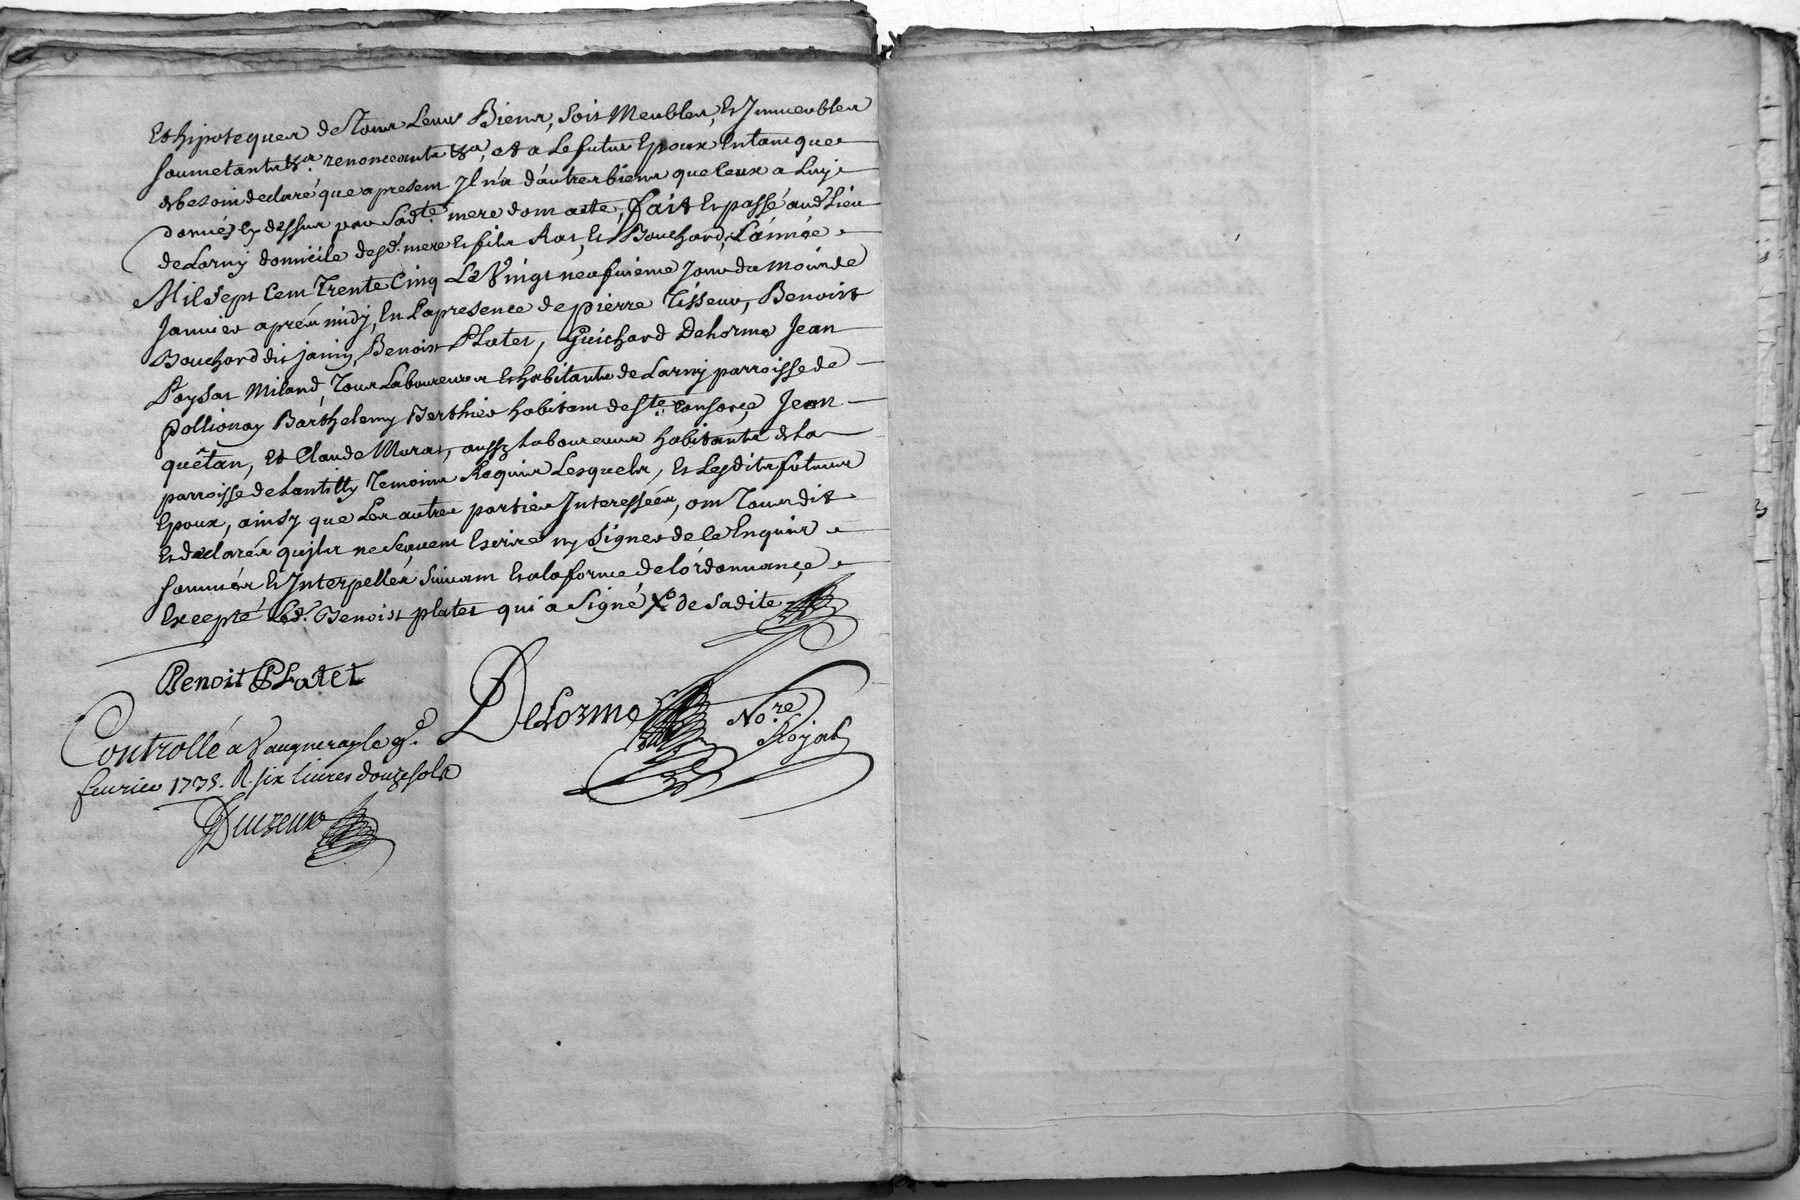 Et hipotequer de Tous Leurs Biens, soit Meubles, Et Immeubles
soumetants &a. renonceants &a, et a Le futur Epoux Entant que
de besoin declaré que apresent Il n'a d'autres biens que Ceux a Luy
donnés Cy dessus par Sadte. mere dont acte, fait Et passé aud Lieu
de Larny domicile desd. mere Et fils Ras, Et Bouchard, L'année
Mil Sept Cent Trente Cinq Le Vingt neufvieme Jour du mois de
Janvier aprés midy, En La presence de pierre Tisseur, Benoist
Bouchard dit janin, Benoist Platet, Guichard Delorme Jean
Poysat Miland, Tous Laboureurs Et habitants de Larny parroisse de
Pollionay Barthelemy Berthier habitant de Ste. Consorce Jean
quêtan, Et Claude Muras, aussy Laboureurs habitants de La
parroisse de Lantilly Temoins Requis Lesquels, Et Lesdits futurs
Epoux, ainsy que Les autres parties Interessées, ont Tous dit
Et declarés qu'ils ne Sçavent Escrire ny Signer de Ce Enquis
sommés Et Interpellés Suivant Et a la forme de L'ordonnançe
Excepté Led. Benoist platet qui a Signé de Sadite
Benoit Platet
Delorme Nore. Royal
Controllé a Vaugneray le 9e.
fevrier 1735. R. six livres douze sols